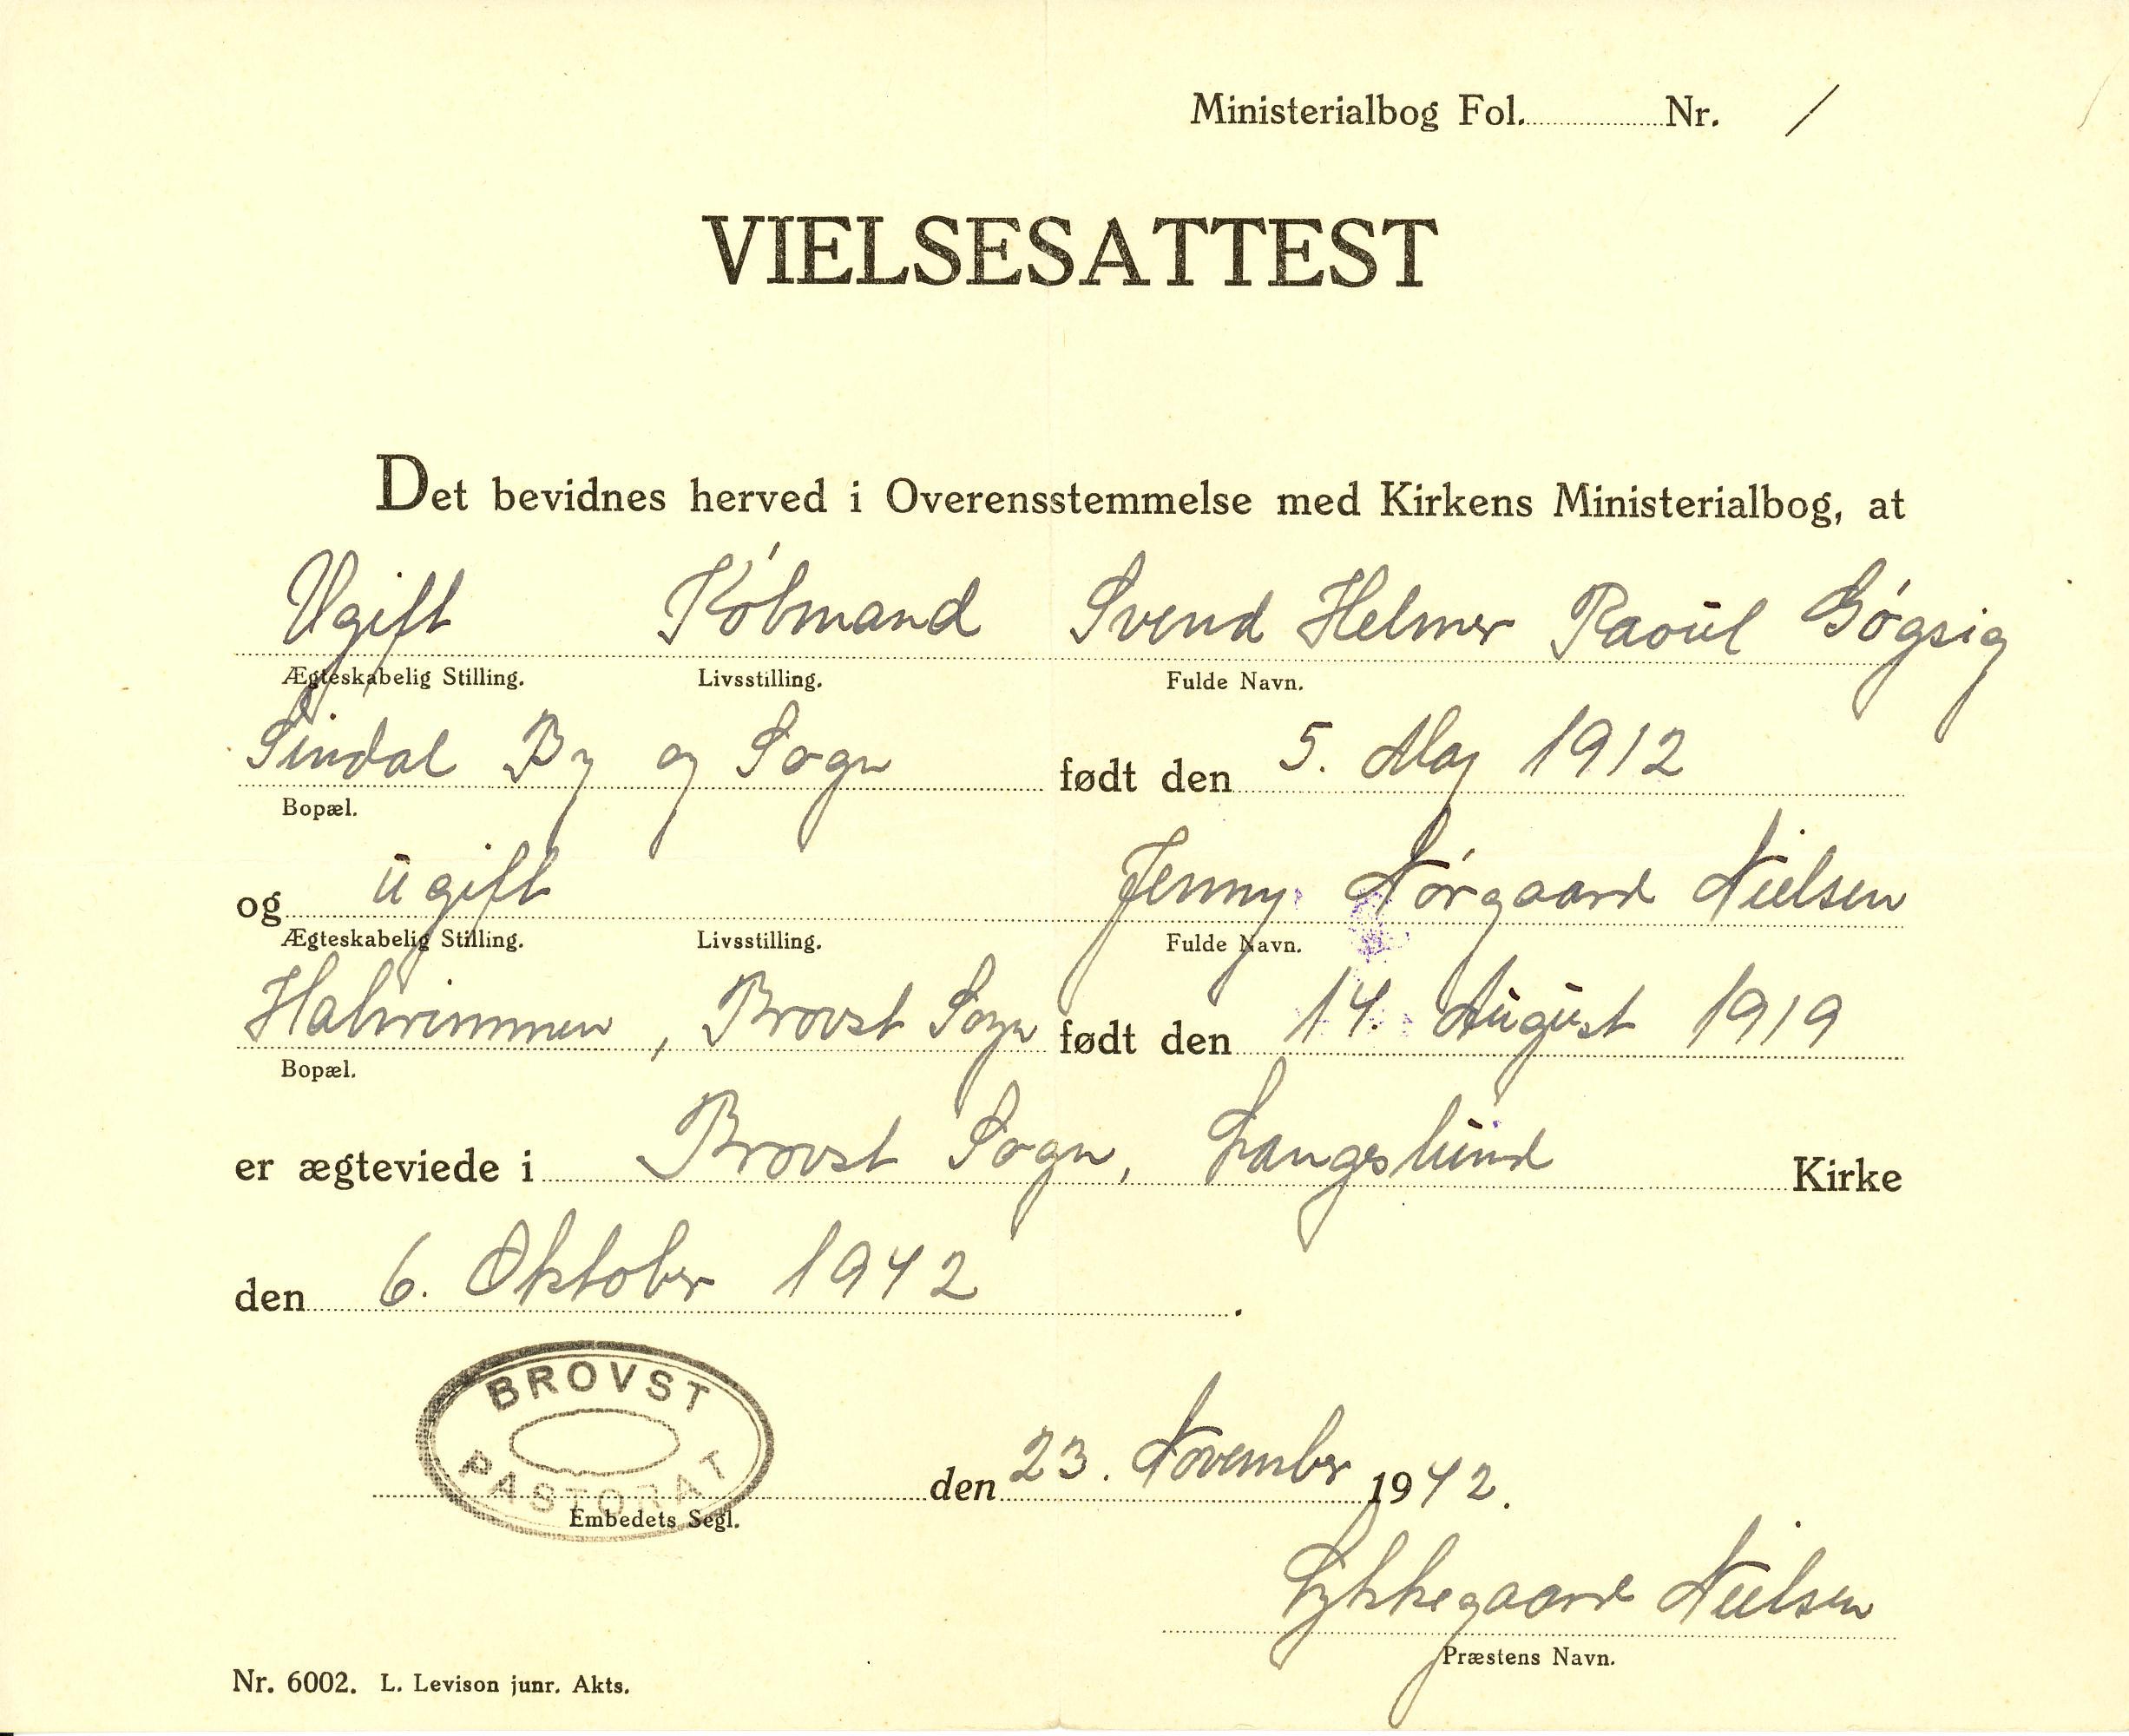 Ministerialbog Fol. Nr. /
VIELSESATTEST
Det bevidnes herved i Overensstemmelse med Kirkens Ministerialbog, at
Ugift Købmand Svend Helmer Raoul Bøgsig
Ægteskabelig Stilling. Livsstilling. Fulde Navn.
Sindal By og Sogn født den 5. Maj 1912
Bopæl.
og ugift Jenny Nørgaard Nielsen
Ægteskabelig Stilling. Livsstilling. Fulde Navn.
Halvrimmen, Brovst Sogn født den 14. August 1919
Bopæl.
er ægteviede i Brovst Sogn, Langeslund Kirke
den 6. Oktober 1942.
BROVST
PASTORAT
den 23. November 1942.
Embedets Segl.
Lykkegaard Nielsen
Præstens Navn.
Nr. 6002. L. Levison junr. Akts.